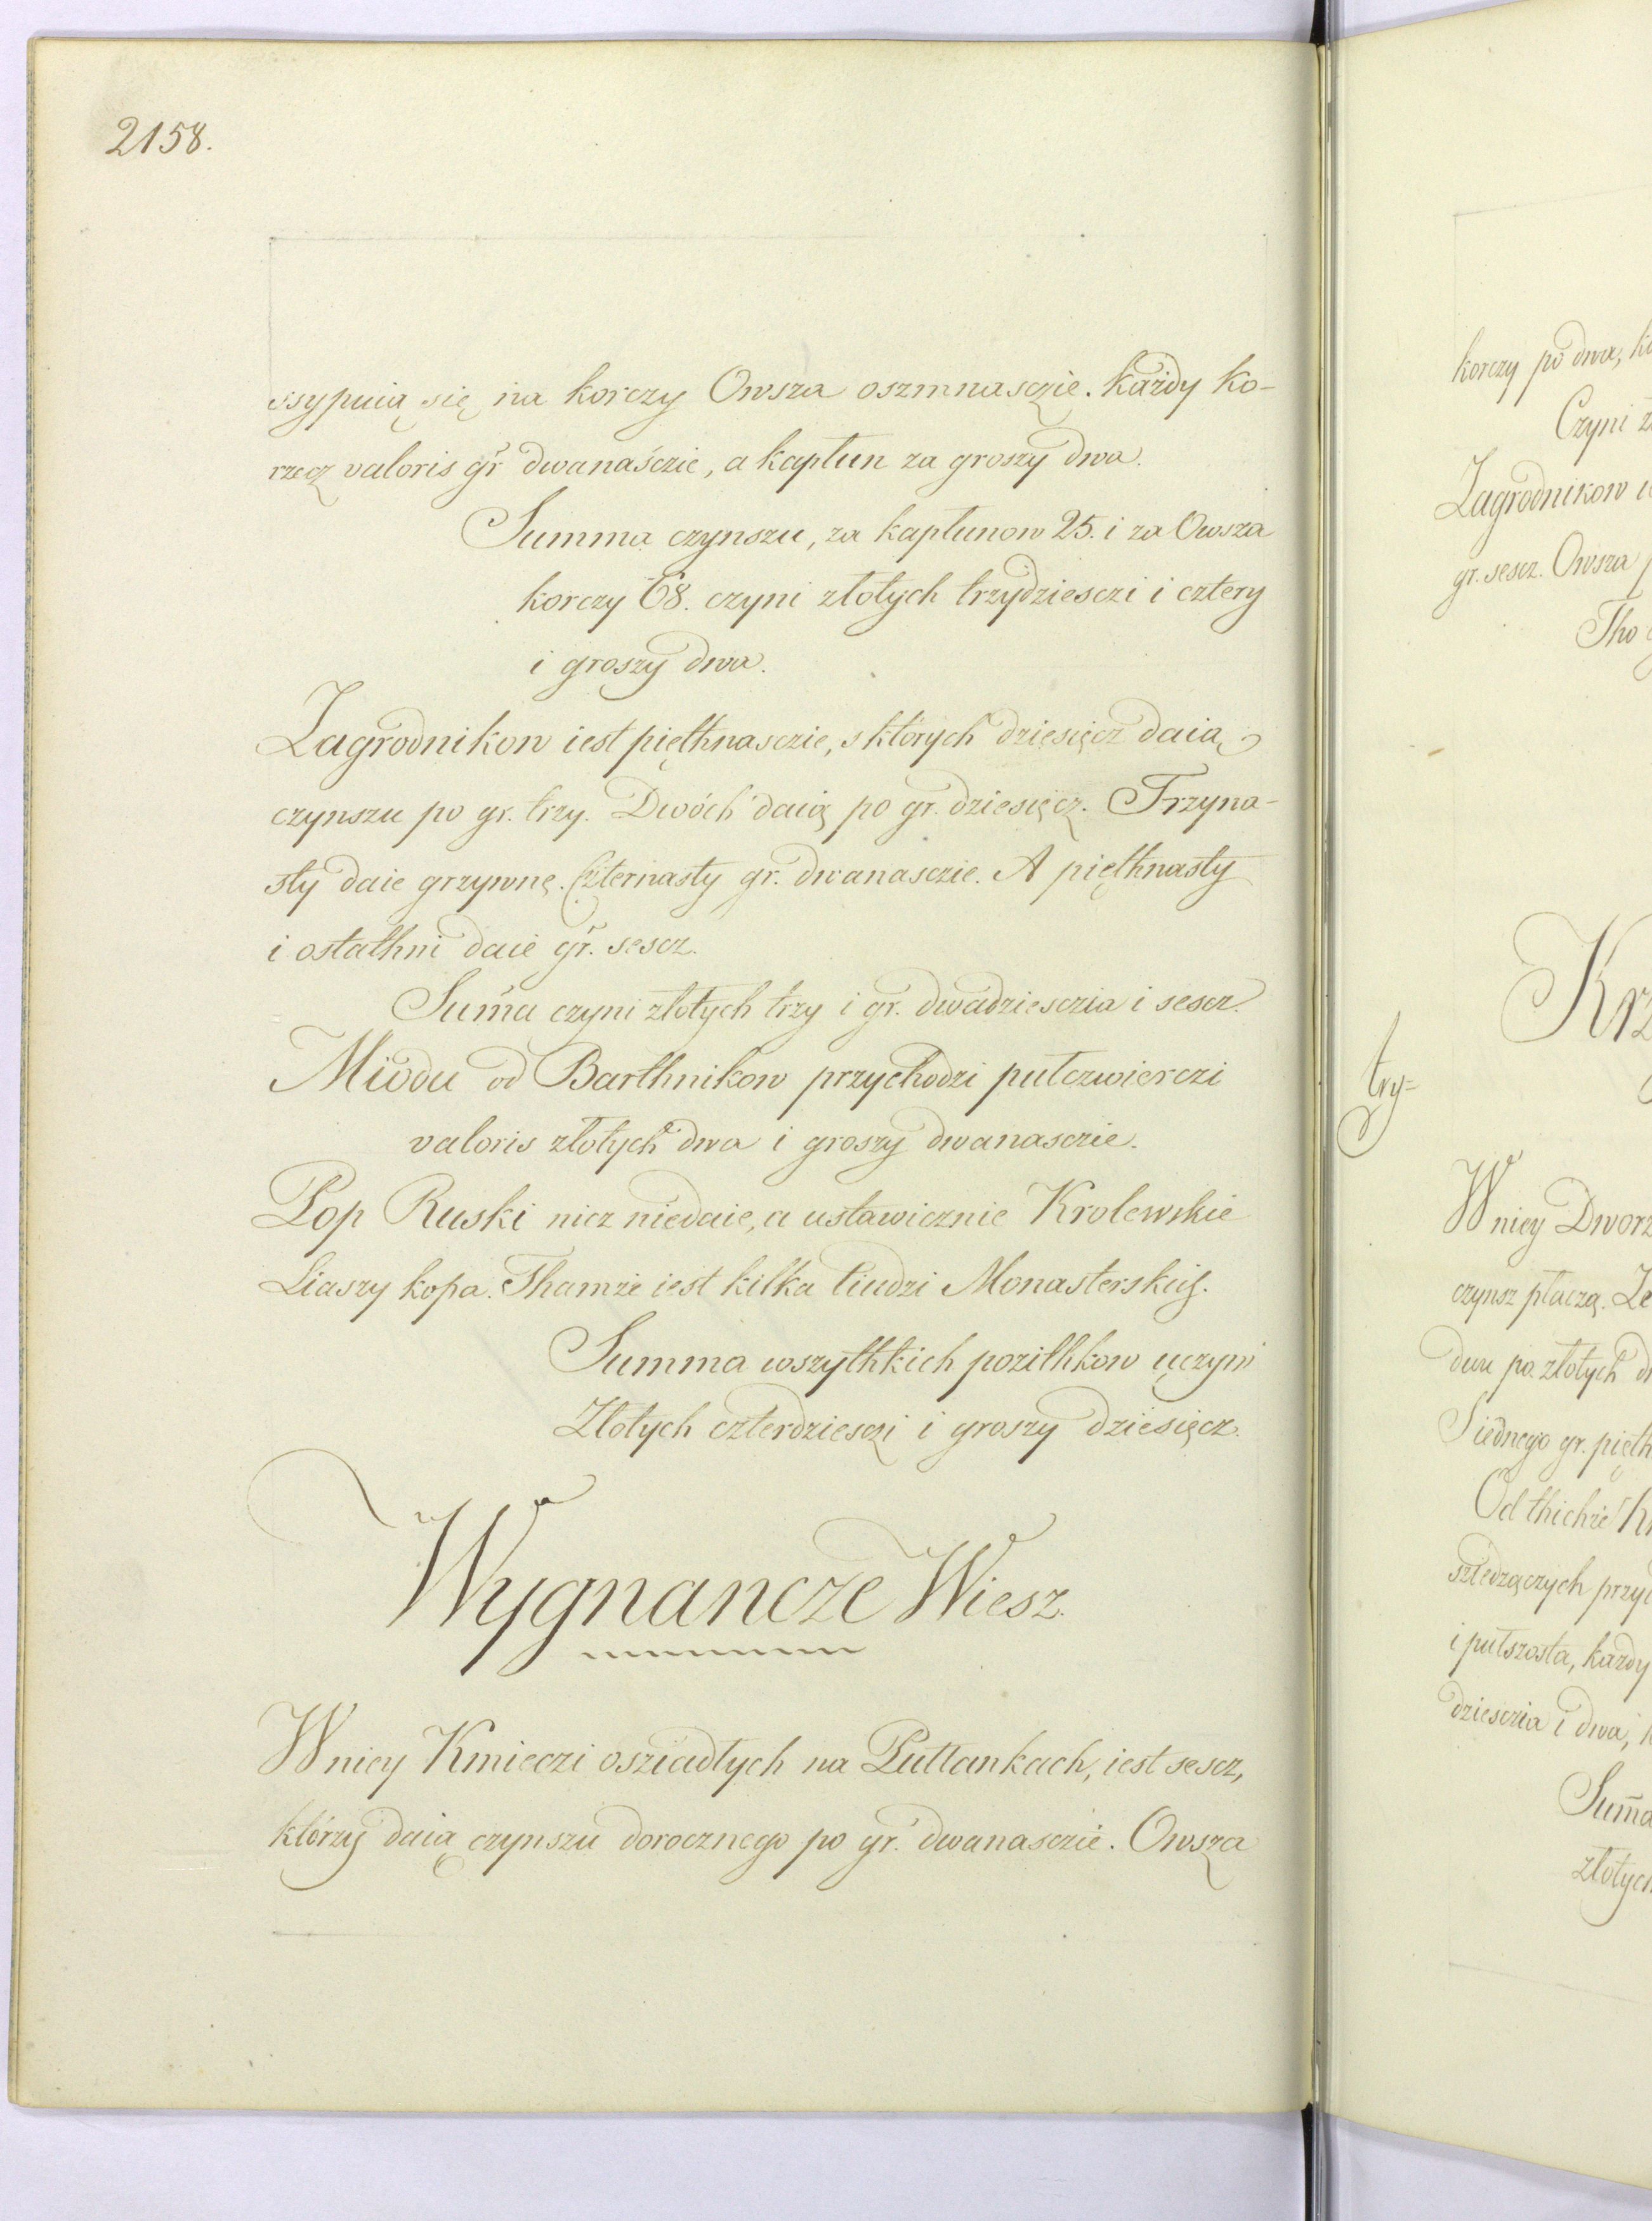 2158.
ssypuią się na korczy Owsza oszmnasczie. każdy ko-
rzecz valoris gr dwanaśczie, a kapłun za groszy dwa.
Summa czynszu, za kapłunow 25. i za Owsza
korczy 68. czyni złotych trzydziesczi i cztery
i groszy dwa.
Zagrodnikow iest pięthnasczie, s których dziesięcz daią
czynszu po gr. trzy. Dwóch daią po gr. dziesięcz. Trzyna-
sty daie grzywnę. Czternasty gr. dwanasczie. A pięthnasty
i ostathni daie gr. sescz.
Suma czyni złotych trzy i gr. dwadziesczia i sescz.
Miodu od Barthnikow przychodzi pułczwierczi
valoris złotych dwa i groszy dwanasczie.
Pop Ruski nicz niedaie, a ustawicznie Krolewskie
Liaszy kopa. Thamże iest kilka liudzi Monasterskich.
Summa wszythkich pozithkow uczyni
Złotych czterdziesczi i groszy dziesięcz.
Wygnancze Wiesz.
W niey Kmieczi osziadłych na Pułłankach, iest sescz,
którzy daią czynszu dorocznego po gr. dwanasczie. Owsza
korczy po dwa,
Czyni
Zagrodnikow
gr. sescz. Owsza
Tho
Krz
try=
W niey Dworz
czynsz płaczą. Ze
dwu po złotych
S iednego gr. pięth
Od thichże
sziedzączych przy
i pułszosta, każdy
dziesczia i dwa,
Suma
złotych